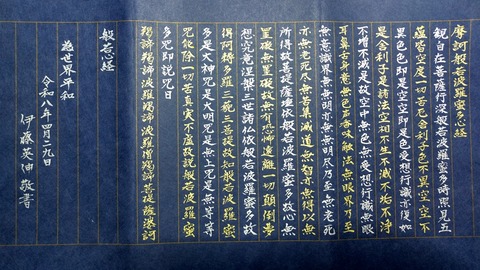 摩訶般若波羅蜜多心経
観自在菩薩行深般若波羅蜜多時照見五
蘊皆空度一切苦厄舎利子色不異空空不
異色色即是空空即是色受想行識亦復如
是舎利子是諸法空相不生不滅不垢不浄
不増不減是故空中無色無受想行識無眼
耳鼻舌身意無色声香味触法無眼界乃至
無意識界無無明亦無無明尽乃至無老死
亦無老死尽無苦集滅道無智亦無得以無
所得故菩提薩埵依般若波羅蜜多故心無
罣礙無罣礙故無有恐怖遠離一切顛倒夢
想究竟涅槃三世諸仏依般若波羅蜜多故
得阿耨多羅三藐三菩提故知般若波羅蜜
多是大神呪是大明呪是無上呪是無等等
呪能除一切苦真実不虚故説般若波羅蜜
多呪即説呪曰
羯諦羯諦波羅羯諦波羅僧羯諦菩提薩婆訶
般若心経
為世界平和
令和八年四月二九日
伊藤英伸 敬書